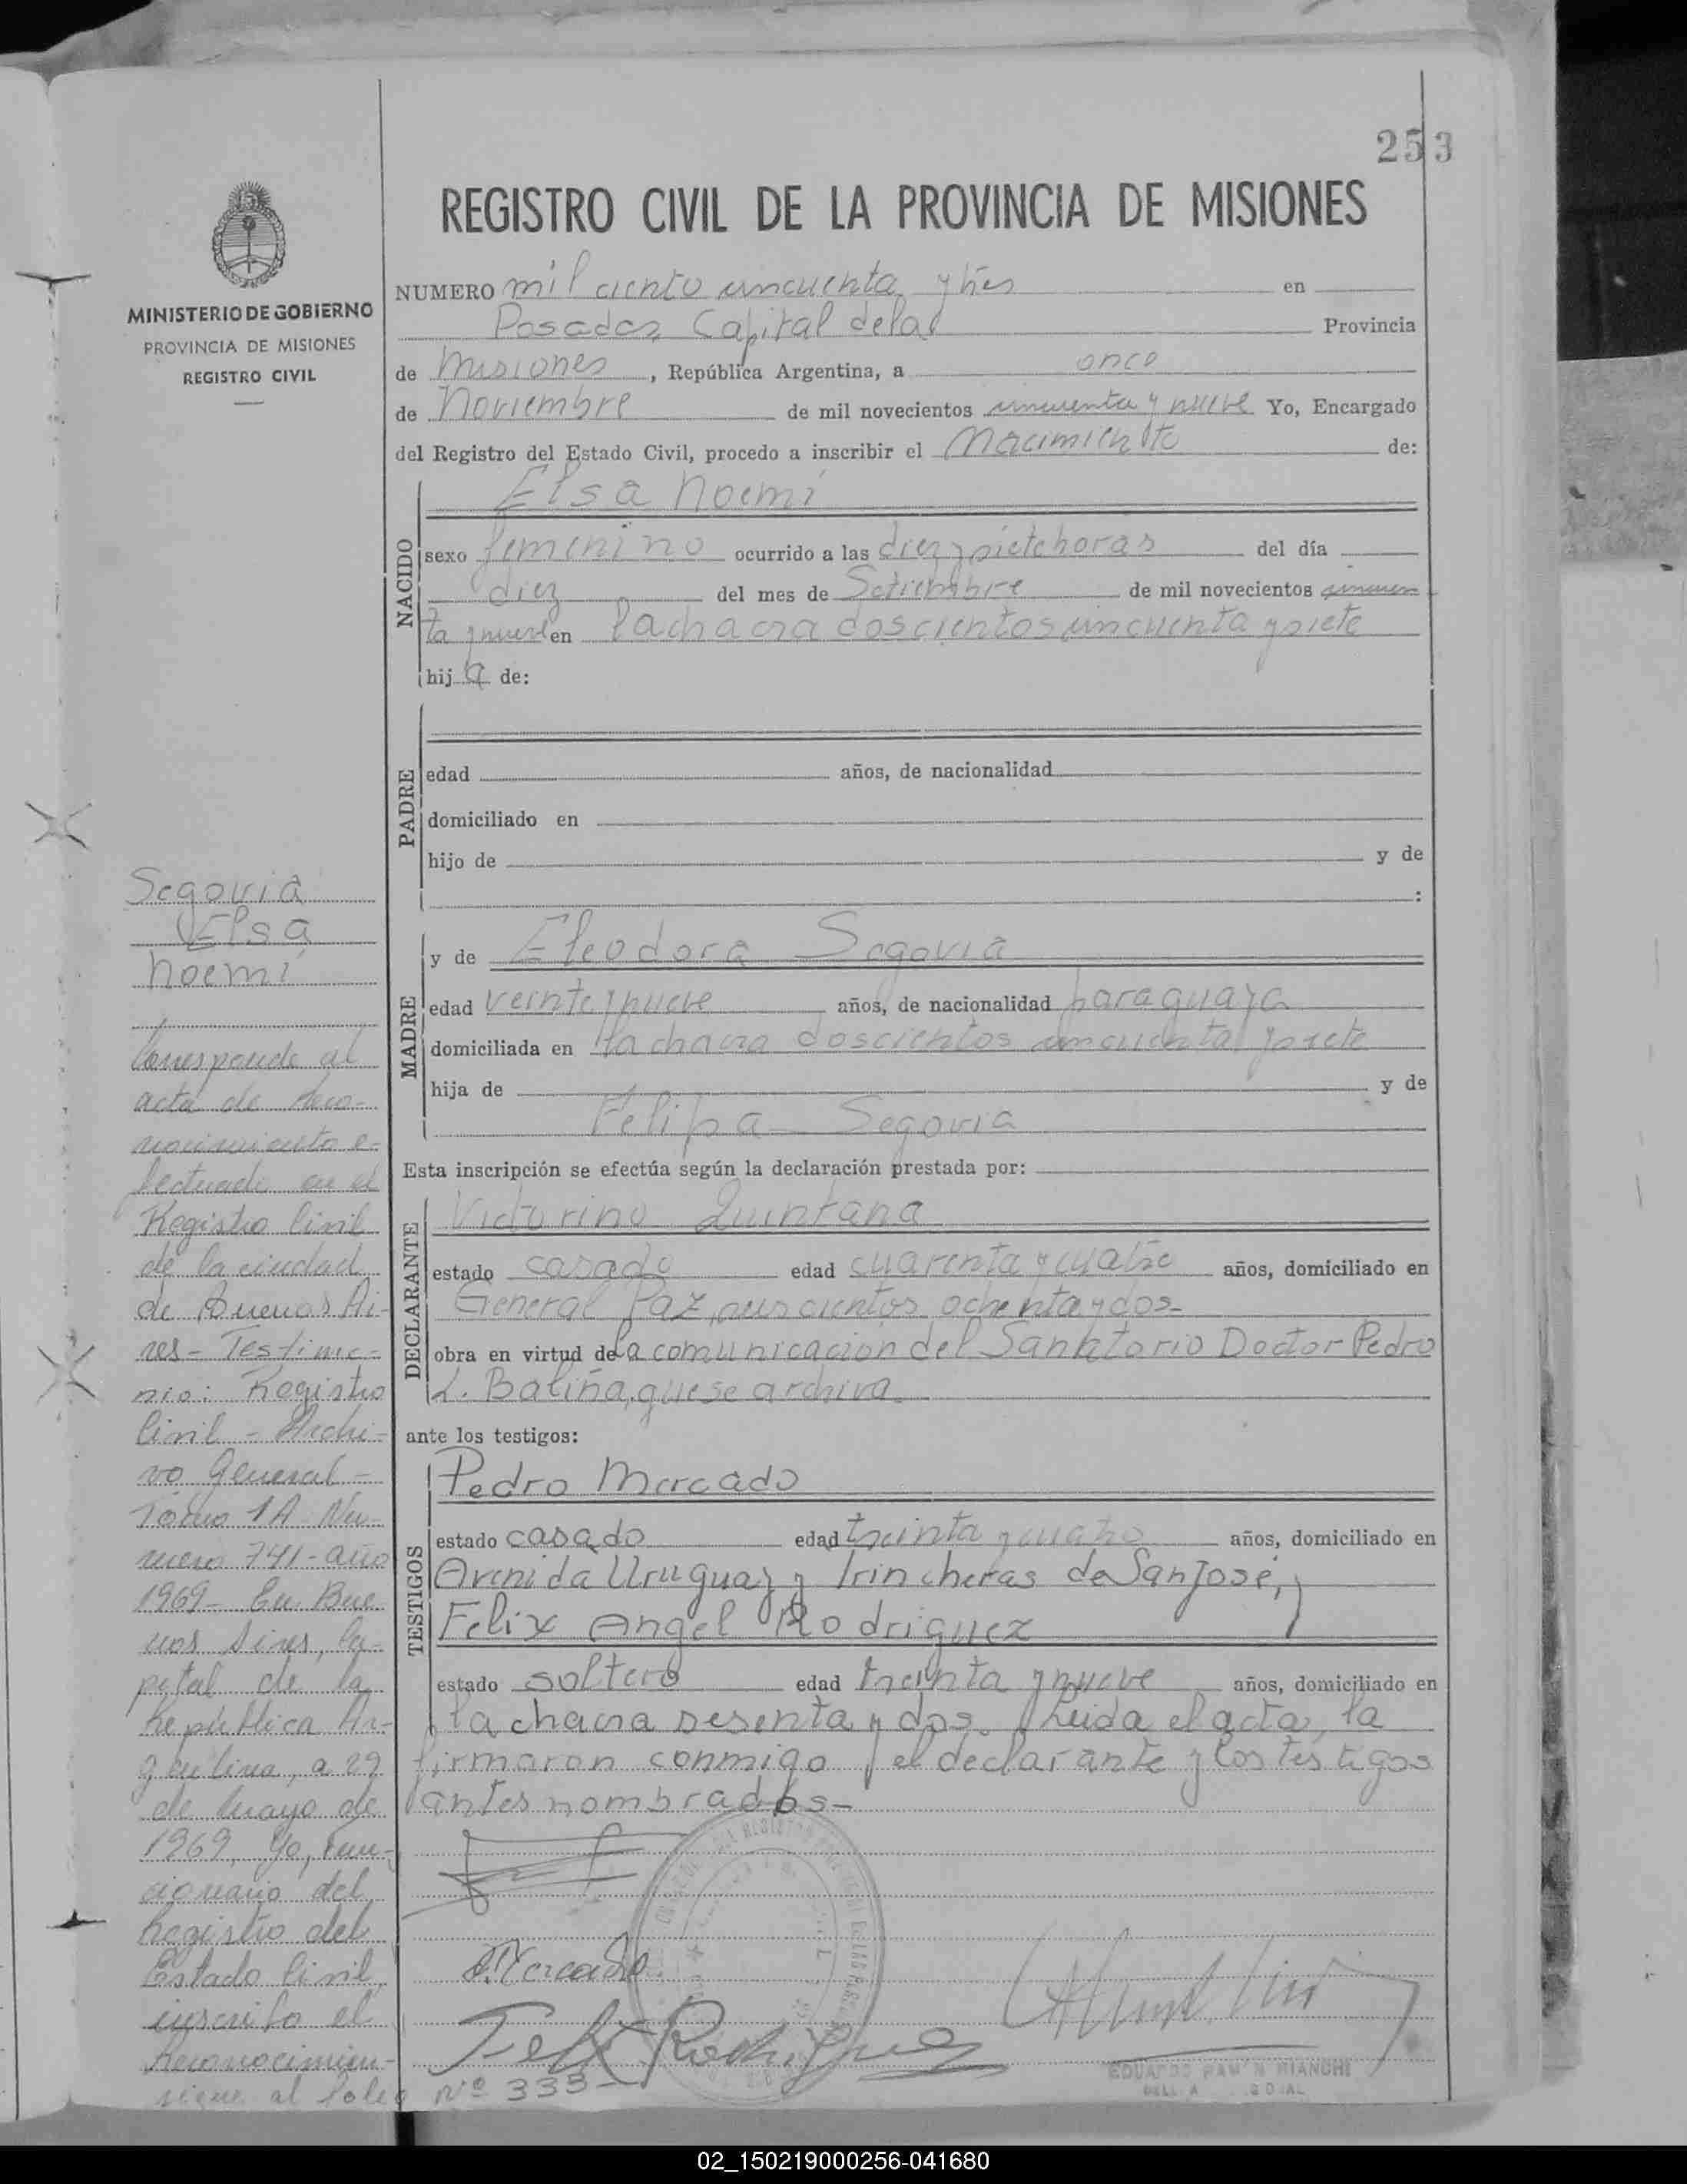 253
REGISTRO CIVIL DE LA PROVINCIA DE MISIONES
MINISTERIO DE GOBIERNO
PROVINCIA DE MISIONES
REGISTRO CIVIL
NUMERO mil ciento cincuenta y tres en
Posadas Capital de la Provincia
de Misiones, República Argentina, a once
de Noviembre de mil novecientos cincuenta y nueve Yo, Encargado
del Registro del Estado Civil, procedo a inscribir el Nacimiento de:
NACIDO
Elsa Noemi
sexo femenino ocurrido a las diez y siete horas del día
diez del mes de Setiembre de mil novecientos cincuen
ta y nueve en la chacra doscientos cincuenta y siete
hij a de:
PADRE
edad años, de nacionalidad
domiciliado en
hijo de y de
:
MADRE
y de Eleodora Segovia
edad veinte y nueve años, de nacionalidad paraguaya
domiciliada en la chacra doscientos cincuenta y siete
hija de y de
Felipa Segovia
Esta inscripción se efectúa según la declaración prestada por:
DECLARANTE
Victorino Quintana
estado casado edad cuarenta y cuatro años, domiciliado en
General Paz, seiscientos ochenta y dos-
obra en virtud de la comunicación del Sanatorio Doctor Pedro
L. Baliña, que se archiva.
ante los testigos:
TESTIGOS
Pedro Mercado
estado casado edad treinta y cuatro años, domiciliado en
Avenida Uruguay y Trincheras de San José, y
Felix Angel Rodriguez
estado soltero edad treinta y nueve años, domiciliado en
la chacra sesenta y dos. Leida el acta, la
firmaron conmigo el declarante y los testigos
antes nombrados-
P. Mercado
Felix Rodriguez
EDUARDO RAMON BIANCHI
Segovia
Elsa
Noemi
Corresponde al
acta de Reco-
nocimiento e-
fectuado en el
Registro Civil
de la ciudad
de Buenos Ai-
res- Testimo-
nio: Registro
Civil - Archi-
vo General-
Tomo 1A Nu-
mero 741- año
1969- En Bue
nos Aires, Ca-
pital de la
República Ar-
gentina, a 29
de Mayo de
1969, Yo, fun-
cionario del
Registro del
Estado Civil,
inscribo el
Reconocimien-
sigue al folio Nº 333-
02_150219000256-041680